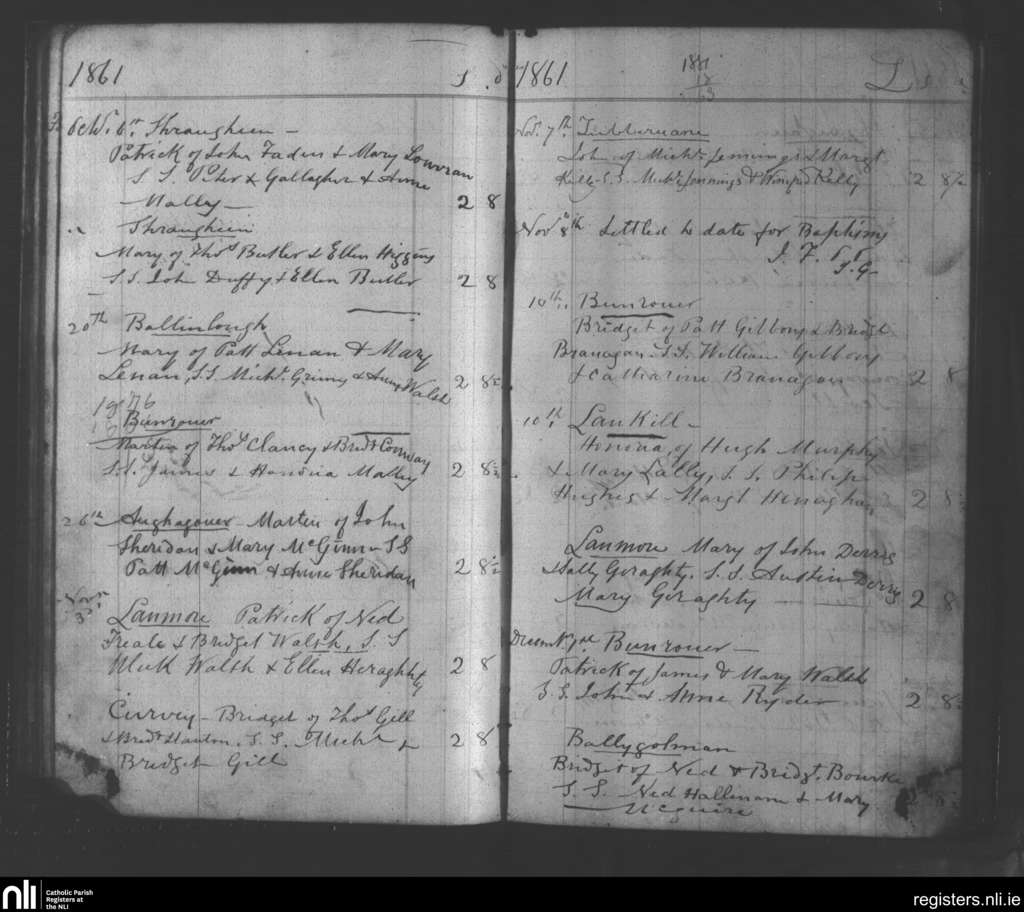 1861 S. d
Octr. 6th. Thraugheen —
Patrick of John Faden & Mary Louvran
S. S. Peter & Gallagher & Anne
Malley — 2 8
Thraugheen
Mary of Thos Butler & Ellen Higgins
S. S. John Duffy & Ellen Butler 2 8
20th Ballinlough
Mary of Patt Lenan & Mary
Lenan, S. S. Michl. Grimes & Anne Walsh 2 8½
1976
Bunrower
Martin of Thos Clancy & Bridt Conway
S. S. James & Honoria Malley 2 8½
26th Aughagower Martin of John
Sheridan & Mary McGinn — S S
Patt McGinn & Anne Sheridan 2 8½
Novr
3d Lanmore Patrick of Ned
Treale & Bridget Walsh, S. S
Mick Walsh & Ellen Heraghty 2 8
Curvey — Bridget of Thos Gill
& Bridt Stanton. S. S. Michl &
Bridget Gill 2 8
1861 L s
1881
18
63
Nov. 7th. Tubberuane
John of Michl. Jennings & Margt
Kelly — S. S. Michl. Jennings & Winifred Kelly 2 8½
Novr 8th Settled to date for Baptisms
J. F. P. P.
J. G.
10th. Bunrower
Bridget of Patt Gibbons & Bridgt
Branagan. S. S. William Gibbons
& Catharine Branagan 2 8
10th. Lankill —
Honoria, of Hugh Murphy
& Mary Lally, S. S. Philip
Hughes & Margt Heneghan 2 8½
Lanmore Mary of John Derrig
& Sally Geraghty. S. S. Austin Derrig
Mary Geraghty — 2 8
Decem. 1st Bunrower —
Patrick of James & Mary Walsh
S. S. John & Anne Ryder 2 8½
Ballygolman
Bridget of Ned & Bridgt. Bourke
S. S. Ned Hallinan & Mary
McGuire 2 8½
nli Catholic Parish
Registers at
the NLI
registers.nli.ie